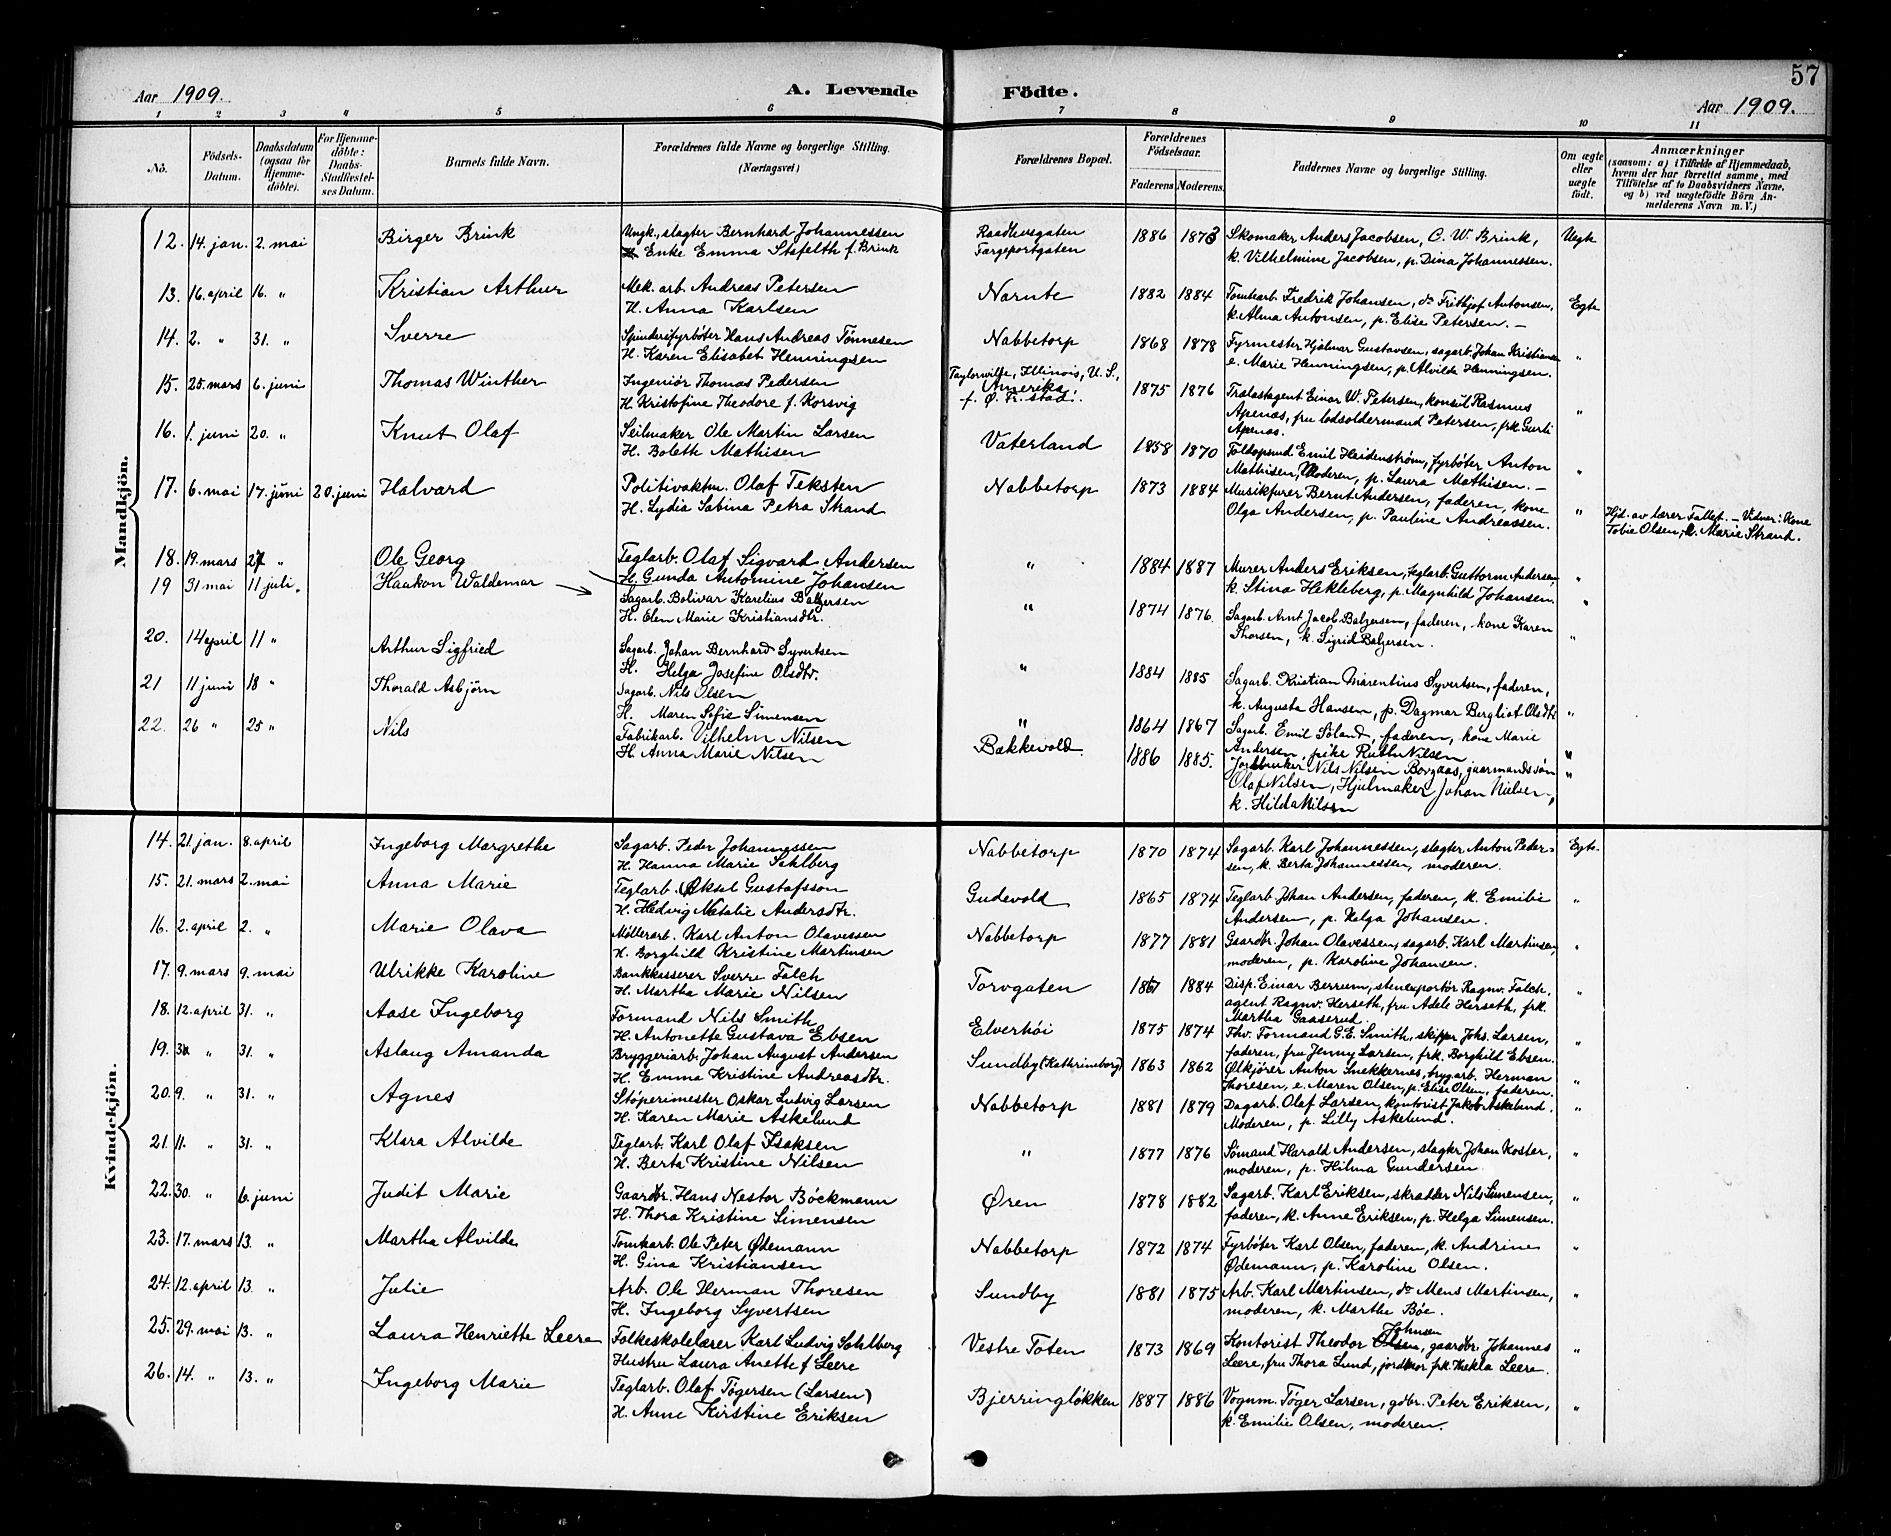 57
Aar 1909.
A. Levende Fødte.
Aar 1909.
1 2 3 4 5 6 7 8 9 10 11
No.
Fødsels-Datum.
Daabsdatum (ogsaa for Hjemmedøbte).
For Hjemmedøbte: Daabs-Stadfæstelses Datum.
Barnets fulde Navn.
Forældrenes fulde Navne og borgerlige Stilling. (Næringsvei)
Forældrenes Bopæl.
Forældrenes Fødselsaar.
Faderens. Moderens.
Faddernes Navne og borgerlige Stilling.
Om ægte eller uægte født.
Anmærkninger
(saasom: a) i Tilfælde af Hjemmedaab, hvem der har forrettet samme, med Tilføielse af to Daabsvidners Navne, og b) ved uægtefødte Börn Anmelderens Navn m. V.)
Mandkjön.
12. 14. jan. 2. mai Birger Brink Ungk., slagter Bernhard Johannessen Raadhusgaten 1886 1873 Skomaker Anders Jacobsen, C. W. Brink, Uegte
Enke Emma Stafelth f. Brink Færgeportgaten k. Vilhelmine Jacobsen, p. Dina Johannessen.
13. 16. april 16. " Kristian Arthur Mek. arb. Andreas Petersen Narnte 1882 1884 Tomtearb. Fredrik Johansen, do Frithjof Antonsen, Egte
H. Anna Karlsen k. Alma Antonsen, p. Elise Petersen. –
14. 2. " 31. " Sverre Spinderifyrbøter Hans Andreas Tønnesen Nabbetorp 1868 1878 Fyrmester Hjalmar Gustavsen, sagarb. Johan Kristiansen "
H. Karen Elisabet Henningsen e. Marie Henningsen, p. Alvilde Henningsen.
15. 25. mars 6. juni Thomas Winther Ingeniör Thomas Pedersen Taylorville, Illinois, U. S., Amerika. 1875 1876 Trælastagent Einar W. Petersen, konsul Rasmus "
H. Kristofine Theodore f. Korsvig f. Ø. Fr.stad. Apenæs, fru lodsoldermand Petersen, frk. Gurli
Apenæs.
16. 1. juni 20. " Knut Olaf Seilmaker Ole Martin Larsen Vaterland 1858 1870 Toldopsmd Emil Heidenstrøm, fyrbøter Anton "
H. Boleth Mathisen Mathisen, Moderen, p. Laura Mathisen. –
17. 6. mai 17. juni 20. juni Halvard Politivaktm. Olaf Teksten Nabbetorp 1873 1884 Musikfurer Bernt Andersen, faderen, kone "
H. Lydia Sabina Petra Strand Olga Andersen, p. Pauline Andreassen.
Hjd. av lærer Fallet. – Vidner: Kone
Tobie Olsen, k. Marie Strand.
18. 19. mars 27 " Ole Georg Teglarb. Olaf Sigvard Andersen " 1884 1887 Murer Anders Eriksen, teglarb. Guttorm Andersen "
H. Gunda Antomine Johansen k. Stina Hekleberg, p. Magnhild Johansen.
19 31 mai 11 juli. Haakon Waldemar Sagarb. Bolivar Karelius Balzersen " 1874 1876. Sagarb. Arnt Jacob Balzersen, faderen, kone Karen "
H. Elen Marie Kristiansdtr. Thorsen, k. Sigrid Balzersen.
20. 14 april 11 " Arthur Sigfried Sagarb. Johan Bernhard Syvertsen " 1884 1885 Sagarb. Kristian Marentius Syvertsen, faderen, "
H. Helga Josefine Olsdtr. k. Augusta Hansen, p. Dagmar Bergliot Olsdtr
21 11 juni 18 " Thorald Asbjörn Sagarb. Nils Olsen " 1864 1867 Sagarb. Emil Söland, faderen, kone Marie "
H. Maren Sofie Simensen Andersen, pike Ruth Nilsen
22. 26 " 25 " Nils Fabrikarb. Vilhelm Nilsen Bakkevold 1886 1885. Jordbruker Nils Nilsen Borgaas, gaarmandssön "
H. Anna Marie Nilsen Olaf Nilsen, Hjulmaker Johan Nielsen,
k. Hilda Nilsen
Kvindekjön.
14. 21. jan. 8. april Ingeborg Margrethe Sagarb. Peder Johannessen Nabbetorp 1870 1874 Sagarb. Karl Johannessen, slagter Anton Peder- Egte.
H. Hanna Marie Sehlberg sen, k. Berta Johannessen, moderen.
15. 21. mars 2. mai Anna Marie Teglarb. Aksel Gustafsson Gudevold 1865 1874 Teglarb. Johan Andersen, faderen, k. Emilie "
H. Hedvig Natalie Andersdtr. Andersen, p. Helga Johansen.
16. 2. april 2. " Marie Olava Møllerarb. Karl Anton Olavessen Nabbetorp 1877 1881 Gaardbr. Johan Olavessen, sagarb. Karl Martinsen, "
H. Borghild Kristine Martinsen moderen, p. Karoline Johansen.
17. 9. mars 9. mai Ulrikke Karoline Bankkasserer Sverre Falch Torvgaten 1867 1884 Disp. Einar Berrum, stenexportör Ragnv. Falch, "
H. Martha Marie Nilsen agent Ragnv. Herseth, fru Adele Herseth, frk.
Martha Gaaserud
18. 12. april 31. " Aase Ingeborg Formand Nils Smith Elverhöi 1875 1874 Fhv. Formand G.E. Smith, skipper Johs. Larsen, "
H. Antonette Gustava Ebsen faderen, fru Jenny Larsen, frk. Borghild Ebsen.
19. 30 " 31. " Aslaug Amanda Bryggeriarb. Johan August Andersen Sundby (Kathrineborg) 1863 1862 Ølkjører Anton Snekkernes, brygarb. Herman "
H. Emma Kristine Andreasdtr. Thoresen, e. Maren Olsen, p. Elise Olsen, faderen.
20. 9. " 31. " Agnes Støperimester Oskar Ludvig Larsen Nabbetorp 1881 1879 Dagarb. Olaf Larsen, kontorist Jakob Askelund. "
H. Karen Marie Askelund Moderen, p. Lilly Askelund.
21. 11. " 31. " Klara Alvilde Teglarb. Karl Olaf Isaksen " 1877 1876 Sømand Harald Andersen, slagter Johan Koster, "
H. Berta Kristine Nilsen moderen, p. Hilma Gundersen
22. 30. " 6. juni Judit Marie Gaardbr. Hans Nestor Böckmann Øren 1878 1882 Sagarb. Karl Eriksen, skrædder Nils Simensen, "
H. Thora Kristine Simensen faderen, k. Anne Eriksen, p. Helga Simensen.
23. 17. mars 13. " Martha Alvilde Tomtearb. Ole Peter Ødemann Nabbetorp 1872 1874 Fyrbøter Karl Olsen, faderen, k. Andrine "
H. Gina Kristiansen Ødemann, p. Karoline Olsen.
24. 12. april 13. " Julie Arb. Ole Herman Thoresen Sundby 1881 1875 Arb. Karl Martinsen, do Mens Martinsen, "
H. Ingeborg Syvertsen moderen, k. Marthe Böe.
25. 29. mai 13. " Laura Henriette Leere Folkeskolelærer Karl Ludvig Sahlberg Vestre Toten 1873 1869 Kontorist Theodor Johnsen, gaardbr. Johannes "
Hustru Laura Anette f. Leere Leere, fru Thora Lund, jordmor frk. Thekla Leere.
26. 14. " 13. " Ingeborg Marie Teglarb. Olaf Tøgersen (Larsen) Bjerringløkken 1887 1886 Vognm. Tøger Larsen, gdbr. Peter Eriksen, "
H. Anne Kirstine Eriksen k. Emilie Olsen, moderen.